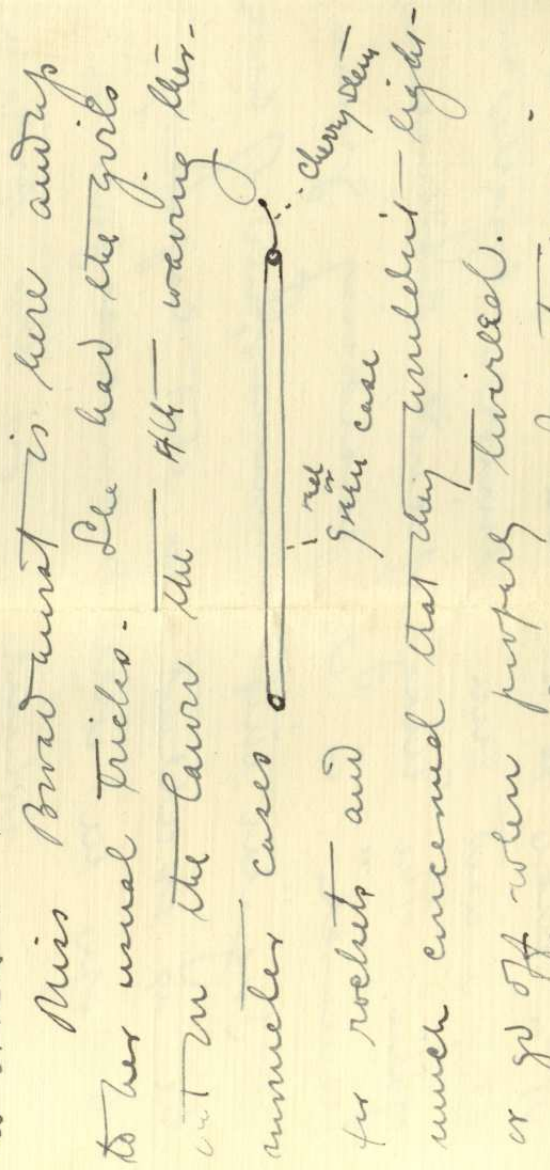 Miss Broadhurst is here and up
to her usual tricks. She had the girls
out on the lawn the 4th waving ther-
mometer cases
cherry stem
red
or
green case
for rockets and
much concerned that they wouldn't light
or go off when properly twirled.